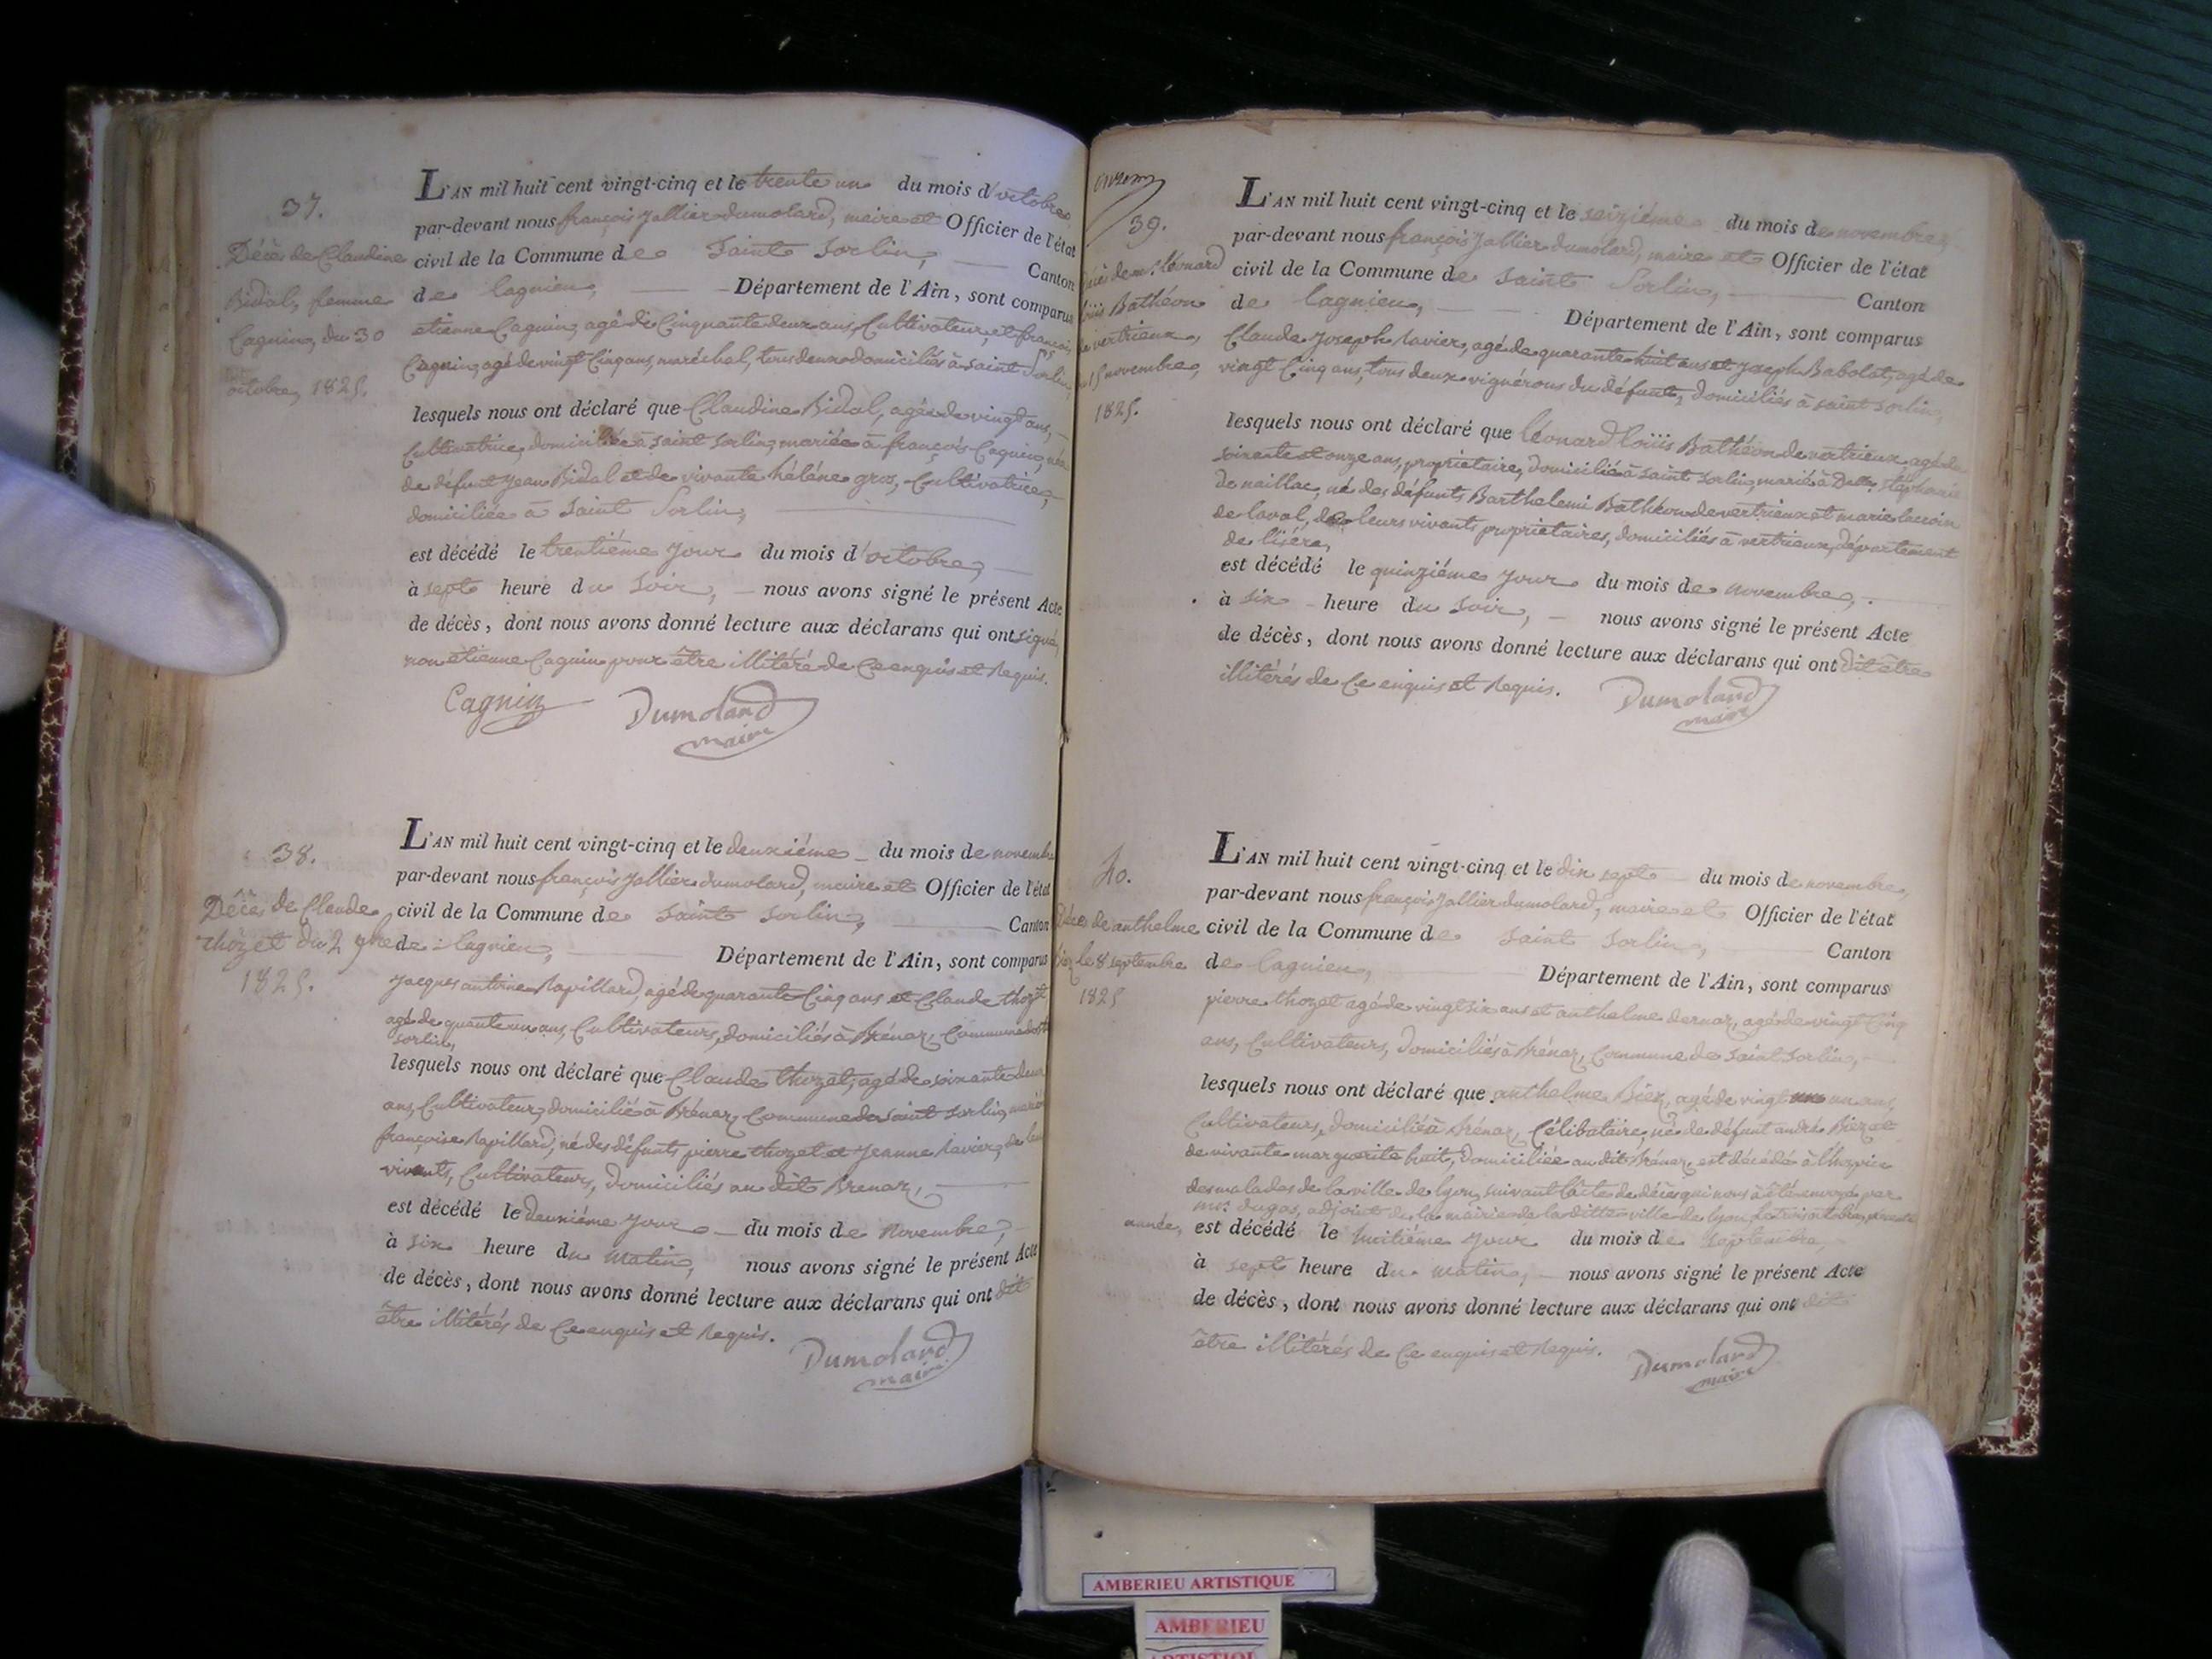 37.
Décès de Claudine
Bidal, femme
Cagnin, du 30
octobre, 1825.
L'AN mil huit cent vingt-cinq et le trente un du mois d'octobre,
par-devant nous françois Jallier dumolard, maire et Officier de l'état
civil de la Commune de Saint Sorlin, Canton
de lagnieu, Département de l'Ain, sont comparus
etienne Cagnin, agé de Cinquante deux ans, Cultivateur, et françois
Cagnin, agé de vingt Cinq ans, maréchal, tous deux domiciliés à saint Sorlin,
lesquels nous ont déclaré que Claudine Bidal, agée de vingt ans,
Cultivatrice, domiciliée à saint Sorlin, mariée à françois Cagnin, née
de défunt Jean Bidal et de vivante hélène gros, Cultivatrice,
domiciliée à Saint Sorlin,
est décédé le trentiéme jour du mois d'octobre,
à sept heure du Soir, nous avons signé le présent Acte
de décès, dont nous avons donné lecture aux déclarans qui ont signé,
non etienne Cagnin pour être illitéré de Ce enquis et Requis.
Cagnin Dumolard
maire
38.
Décès de Claude
thozet du 2 9bre
1825.
L'AN mil huit cent vingt-cinq et le deuxiéme du mois de novembre
par-devant nous françois Jallier dumolard, maire et Officier de l'état
civil de la Commune de Saint Sorlin, Canton
de lagnieu, Département de l'Ain, sont comparus
Jacques antoine Rapillard, agé de quarante Cinq ans et Claude thozet
agé de quarante un ans, Cultivateurs, domiciliés à Brénaz, Commune de st
Sorlin,
lesquels nous ont déclaré que Claude thozet, agé de soixante deux
ans, Cultivateur, domicilié à Brénaz, Commune de saint Sorlin, marié
françoise Rapillard, né des défunts pierre thozet et Jeanne Ravier, de leur
vivants, Cultivateurs, domiciliés au dit Brenaz,
est décédé le deuxiéme jour du mois de Novembre,
à Six heure du matin, nous avons signé le présent Acte
de décès, dont nous avons donné lecture aux déclarans qui ont dit
être illitérés de Ce enquis et Requis.
Dumolard
maire
39.
Décès de mr. léonard
loüis Bathéon
de vertrieux,
15 novembre,
1825.
L'AN mil huit cent vingt-cinq et le seiziéme du mois de novembre,
par-devant nous françois Jallier dumolard, maire et Officier de l'état
civil de la Commune de Saint Sorlin, Canton
de lagnieu, Département de l'Ain, sont comparus
Claude Joseph Ravier, agé de quarante huit ans et Joseph Babolat, agé de
vingt Cinq ans, tous deux vignérons du défunt, domiciliés à saint Sorlin,
lesquels nous ont déclaré que léonard loüis Bathéon de vertrieux agé de
soixante et onze ans, propriétaire, domicilié à saint Sorlin, marié à Delle Stéphanie
de naillac, né des défunts Barthelemi Bathéon de vertrieux et marie lacroix
de laval, de leurs vivants propriétaires, domiciliés à vertrieux, département
de l'isére,
est décédé le quinziéme jour du mois de novembre,
à six heure du Soir, nous avons signé le présent Acte
de décès, dont nous avons donné lecture aux déclarans qui ont dit être
illitérés de Ce enquis et Requis.
Dumolard
maire
40.
Décès de anthelme
Biez le 8 septembre
1825
L'AN mil huit cent vingt-cinq et le dix sept du mois de novembre,
par-devant nous françois Jallier dumolard, maire et Officier de l'état
civil de la Commune de Saint Sorlin, Canton
de lagnieu, Département de l'Ain, sont comparus
pierre thozet agé de vingt six ans et anthelme dernaz, agé de vingt Cinq
ans, Cultivateurs, domiciliés à Brénaz, Commune de saint Sorlin,
lesquels nous ont déclaré que anthelme Biez, agé de vingt un ans,
Cultivateurs, domicilié à Brénaz, Célibataire, né de défunt andré Biez et
de vivante marguerite huit, domiciliée au dit Brénaz, est décédé à l'hospice
des malades de la ville de lyon, suivant l'acte de décès qui nous à été envoyé par
mr. dugas, adjoint de la mairie de la ditte ville de lyon
année, est décédé le huitiéme jour du mois de Septembre,
à sept heure du matin, nous avons signé le présent Acte
de décès, dont nous avons donné lecture aux déclarans qui ont dit
être illitérés de Ce enquis et Requis.
Dumolard
maire
AMBERIEU ARTISTIQUE
AMBERIEU
ARTISTIQUE